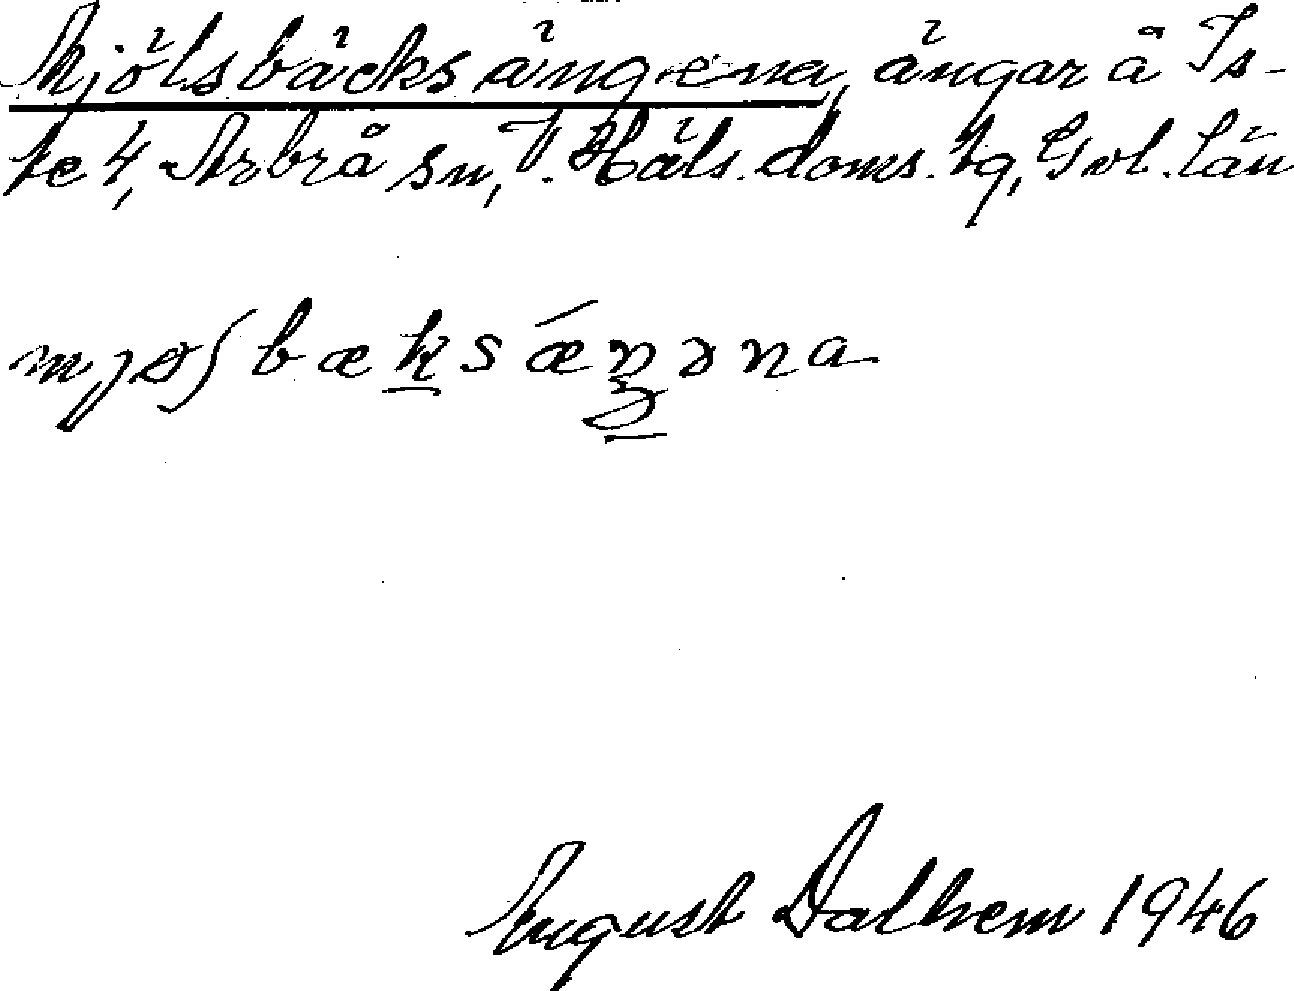 Mjölsbäcksängena, ängar å Is-
te 4, Arbrå sn, V. Häls. doms. tg, Gvl. län
mjøʃbæksǽŋəna
August Dalhem 1946